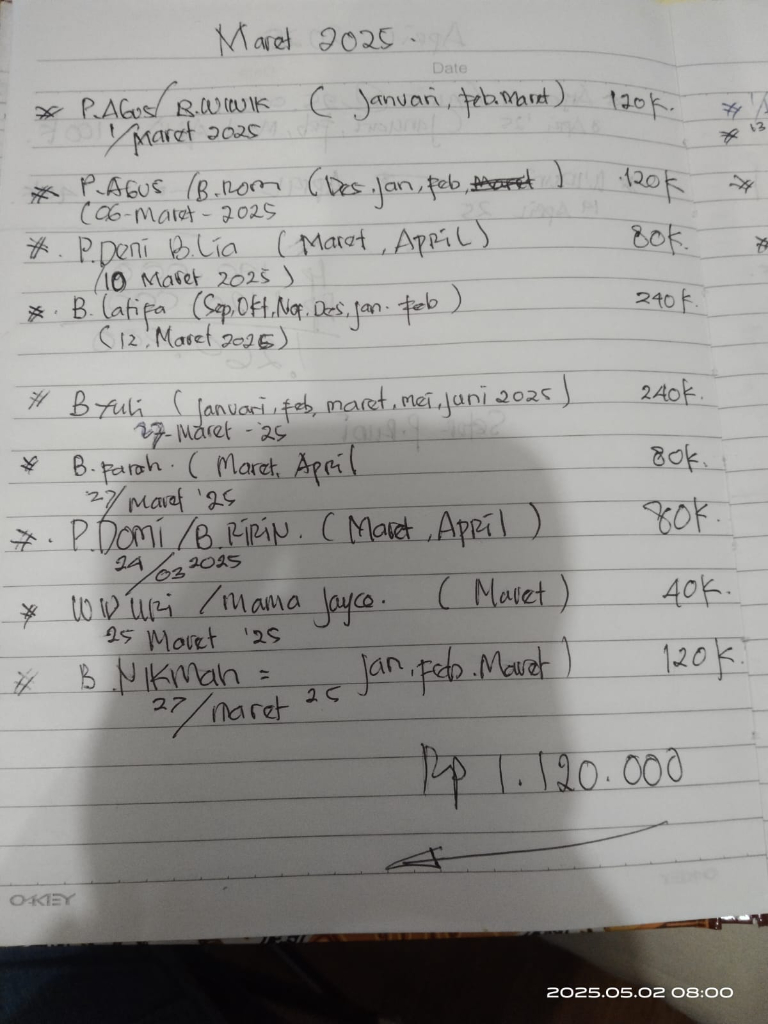 Maret 2025.
Date
* P.AGUS/B.WIWIK ( Januari, feb.maret) 120K.
1/maret 2025
* P.AGUS /B.ROM (Des.jan, feb, maret ) 120K
(06-maret-2025
* . P.Deni B.Lia (Maret, April) 80K.
/10 Maret 2025)
* . B. Latifa (Sep, Okt, Nof, Des, jan. feb) 240K.
(12.Maret 2025)
* B Yuli (Januari, feb, maret, mei, juni 2025) 240K.
27-Maret-'25
* B.farah. ( Maret, April 80K.
27/Maret '25
* . P.Domi /B.RIRIN. ( Maret, April ) 80K.
24/03 2025
* WWURi /mama Jayco. ( Maret) 40K.
25 Maret '25
* B.NIKMah = jan, feb.Maret) 120K.
27/maret 25
Rp 1.120.000
O-KEY
2025.05.02 08:00